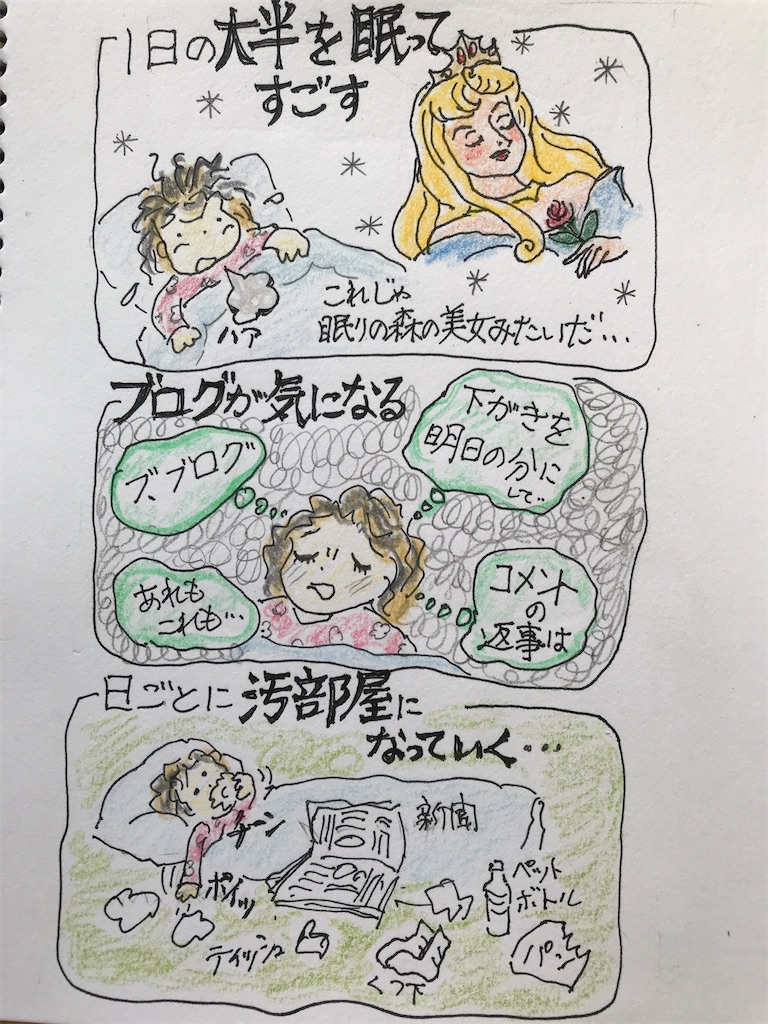 1日の大半を眠って
すごす
ハア
これじゃ
眠りの森の美女みたいだ…
ブログが気になる
ブ、ブログ
下がきを
明日の分に
して…
あれも
これも…
コメント
の
返事は
日ごとに汚部屋に
なっていく…
チーン
新聞
ポイッ
ペット
ボトル
ティッシュ
くつ下
パン